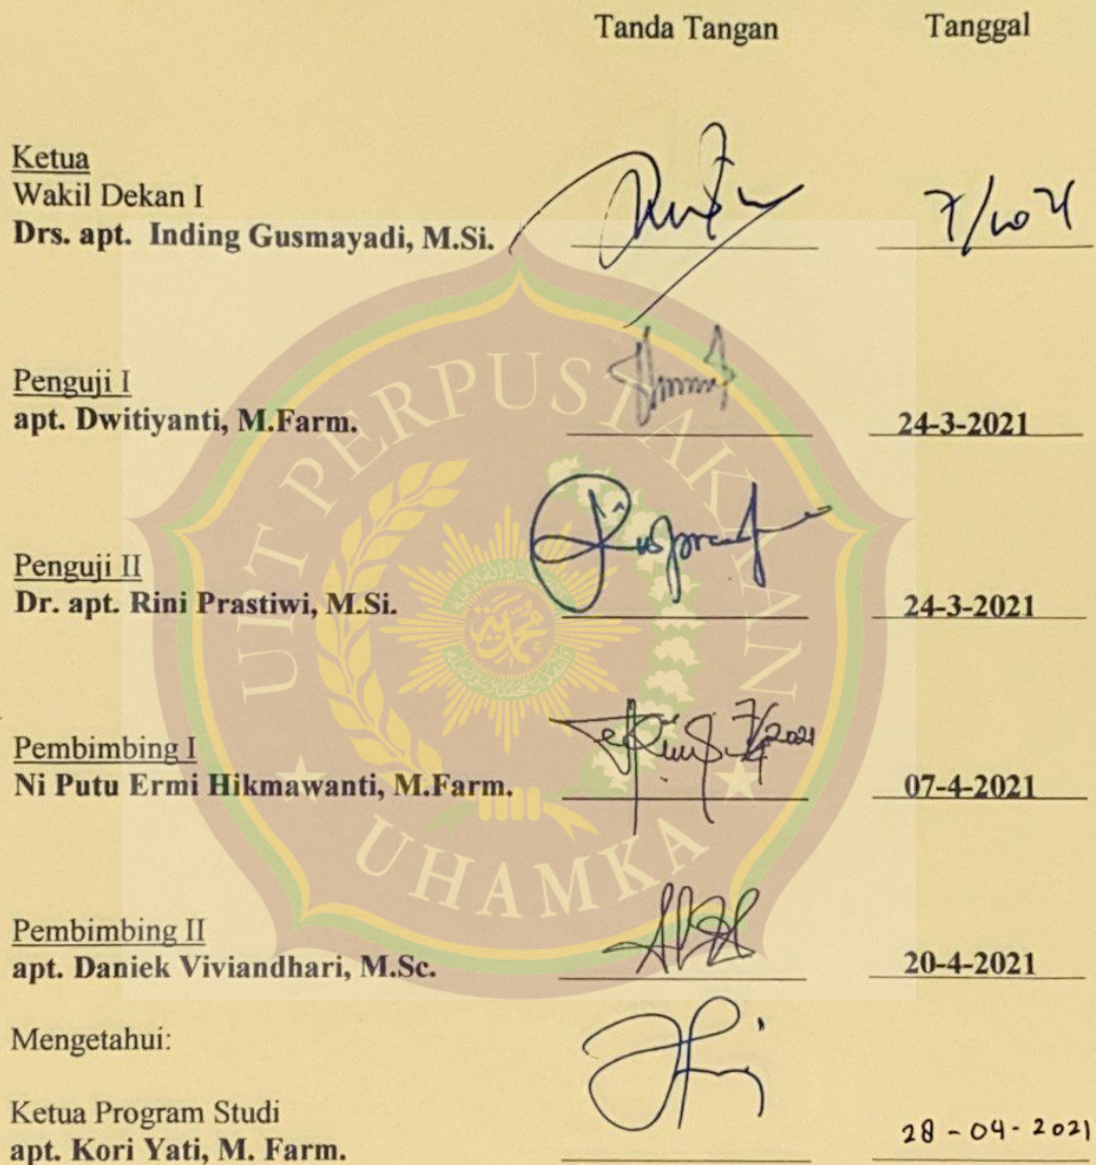 Tanda Tangan Tanggal
Ketua
Wakil Dekan I
Drs. apt. Inding Gusmayadi, M.Si.
Penguji I
apt. Dwitiyanti, M.Farm.
24-3-2021
Penguji II
Dr. apt. Rini Prastiwi, M.Si.
24-3-2021
Pembimbing I
Ni Putu Ermi Hikmawanti, M.Farm.
7/4 2021
07-4-2021
Pembimbing II
apt. Daniek Viviandhari, M.Sc.
20-4-2021
Mengetahui:
Ketua Program Studi
apt. Kori Yati, M. Farm.
28-04-2021
UPT PERPUSTAKAAN
UHAMKA